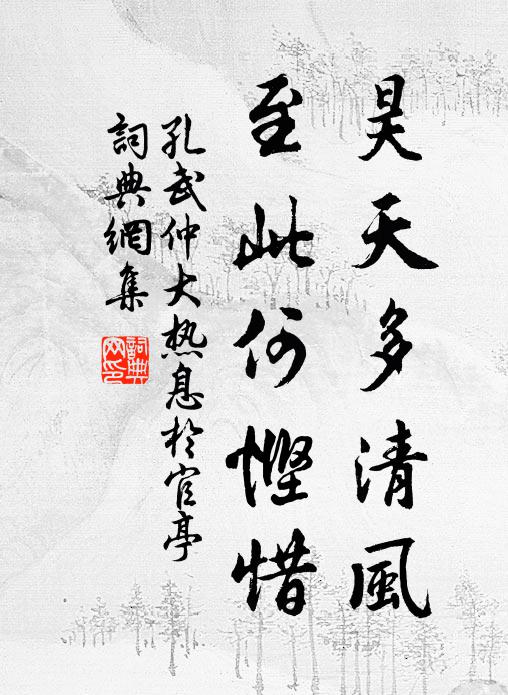 昊天多清風
至此何慳惜
孔武仲大热息於官亭
詞典網集
詞典網印